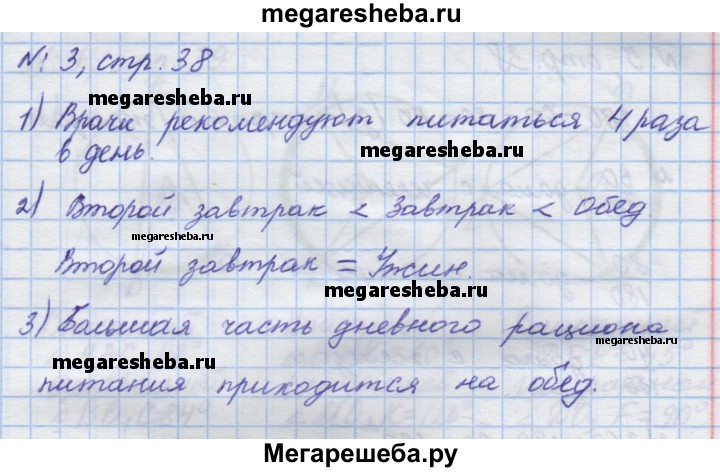 megaresheba.ru
№ 3, стр. 38
megaresheba.ru
1) Врачи рекомендуют питаться 4 раза
в день.
megaresheba.ru
2) Второй завтрак < Завтрак < Обед.
megaresheba.ru
Второй завтрак = Ужин.
megaresheba.ru
3) Большая часть дневного рациона
megaresheba.ru
megaresheba.ru
питания приходится на обед.
Мегарешеба.ру